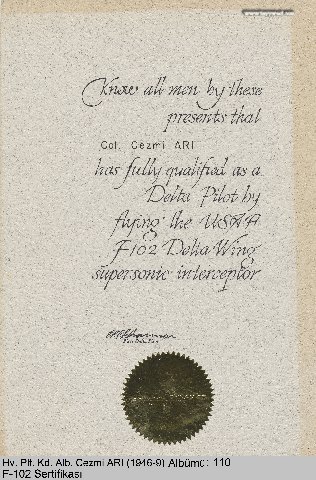 Know all men by these
presents that
Col. Cezmi ARI
has fully qualified as a
Delta Pilot by
flying the USAF
F102 Delta Wing
supersonic interceptor
Hv. Plt. Kd. Alb. Cezmi ARI (1946-9) Albümü: 110
F-102 Sertifikası